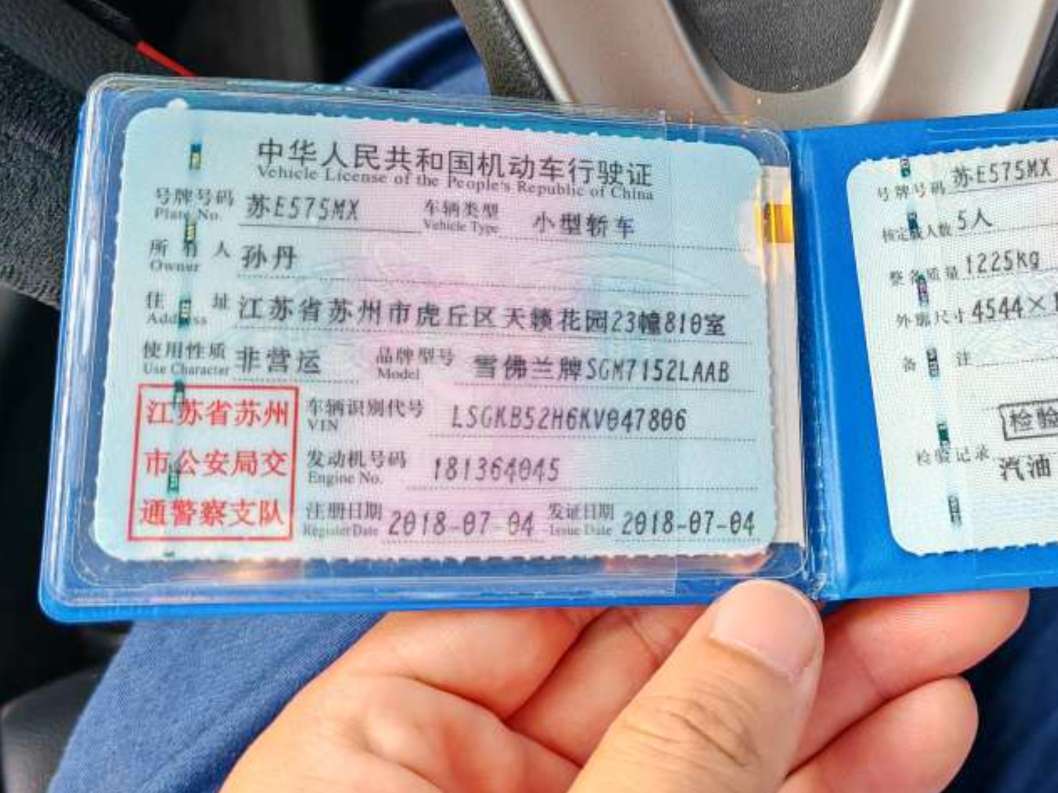 中华人民共和国机动车行驶证
Vehicle License of the People's Republic of China
号牌号码 苏E575MX 车辆类型 小型轿车
Plate No. Vehicle Type
所有人 孙丹
Owner
住址 江苏省苏州市虎丘区天籁花园23幢810室
Address
使用性质 非营运 品牌型号 雪佛兰牌SGM7152LAAB
Use Character Model
江苏省苏州
市公安局交
通警察支队
车辆识别代号 LSGKB52H6KV047806
VIN
发动机号码 181364045
Engine No.
注册日期 2018-07-04 发证日期 2018-07-04
Register Date Issue Date
号牌号码 苏E575MX
核定载人数 5人
整备质量 1225kg
外廓尺寸 4544×
备注
检验
检验记录 汽油